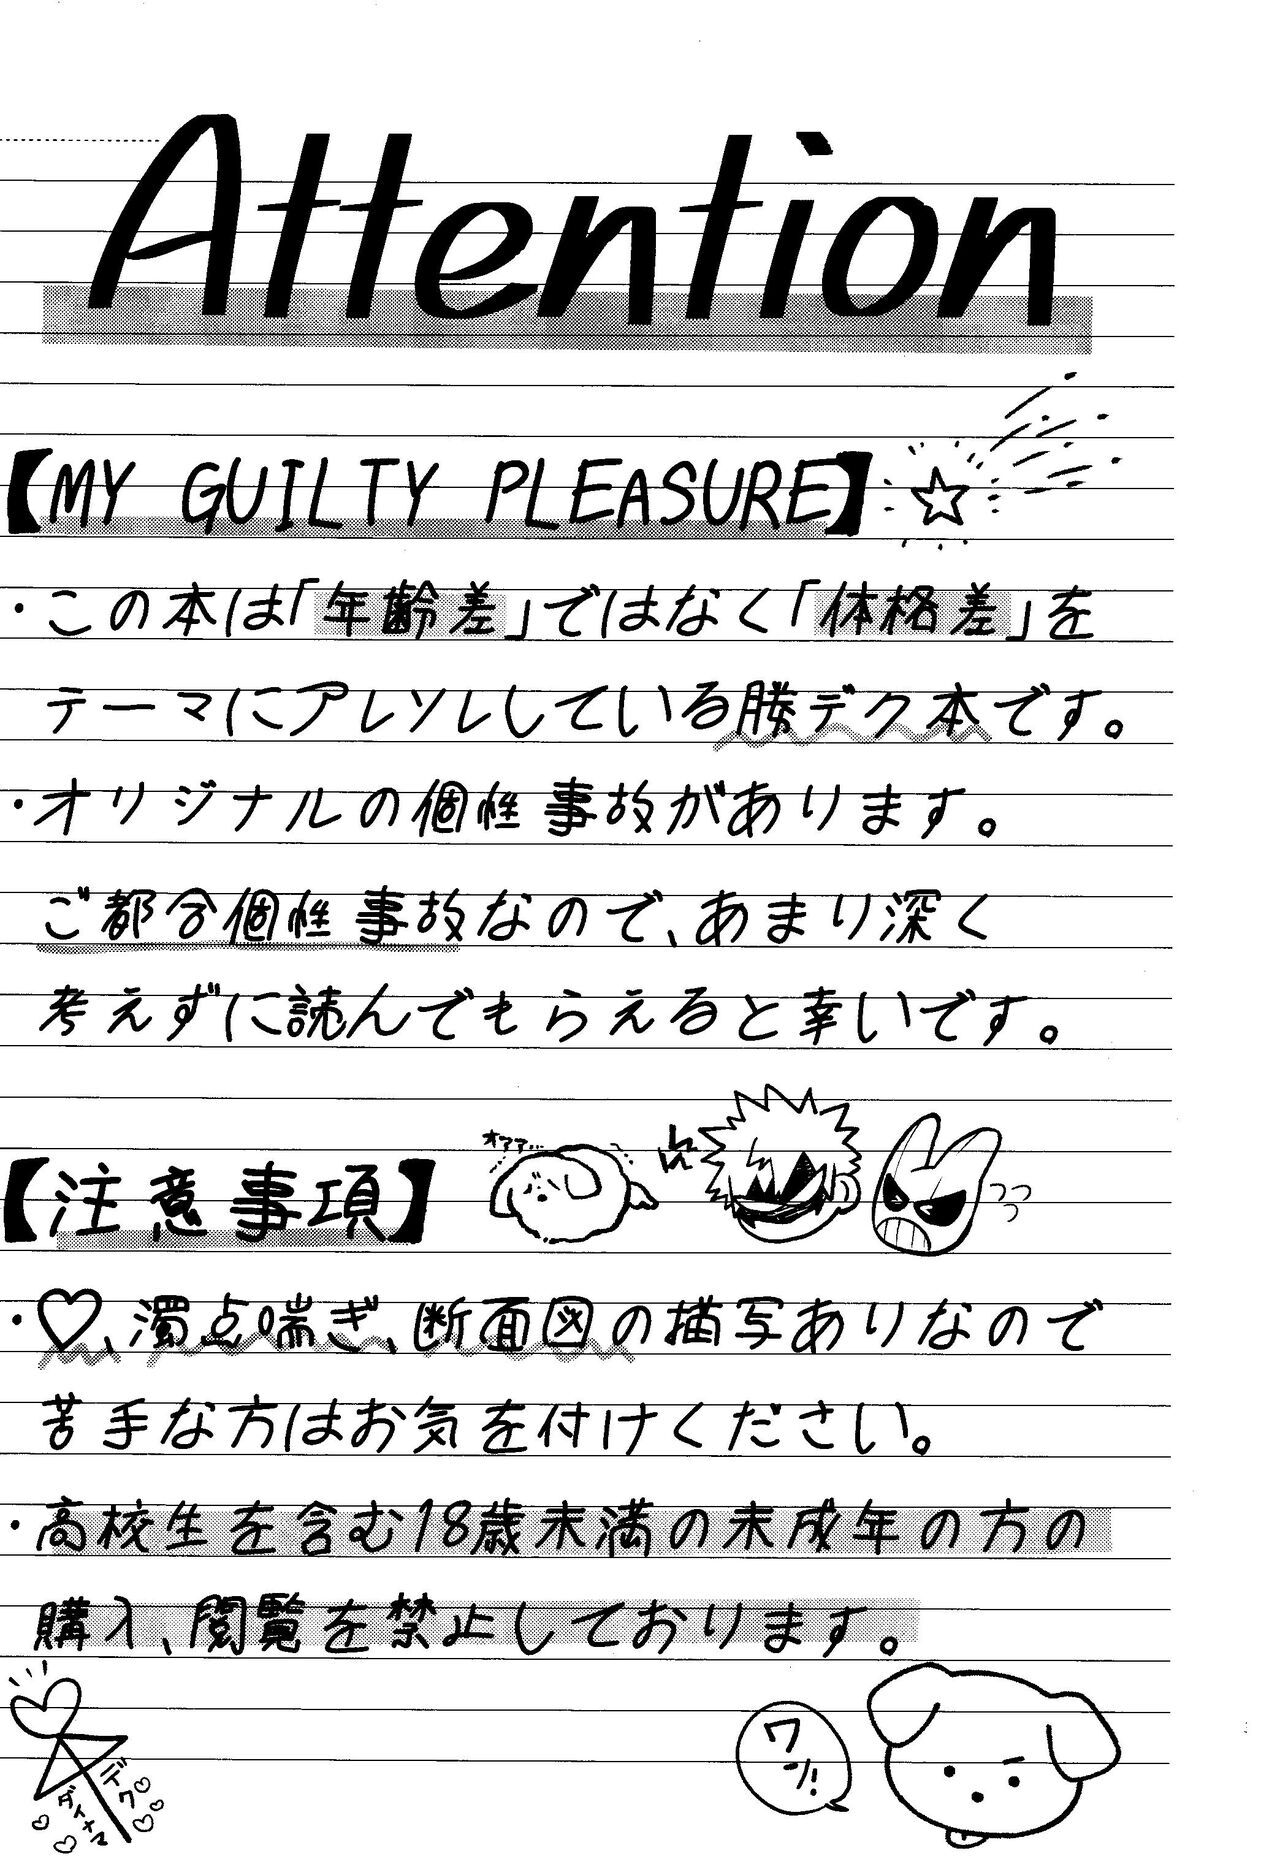 Attention
【MY GUILTY PLEASURE】
・この本は「年齢差」ではなく「体格差」を
テーマにアレソレしている勝デク本です。
・オリジナルの個性事故があります。
ご都合個性事故なので、あまり深く
考えずに読んでもらえると幸いです。
オアア…
【注意事項】
・♡、濁点喘ぎ、断面図の描写ありなので
苦手な方はお気を付けください。
・高校生を含む18歳未満の未成年の方の
購入、閲覧を禁止しております。
デク
ダイナマ
ワン!